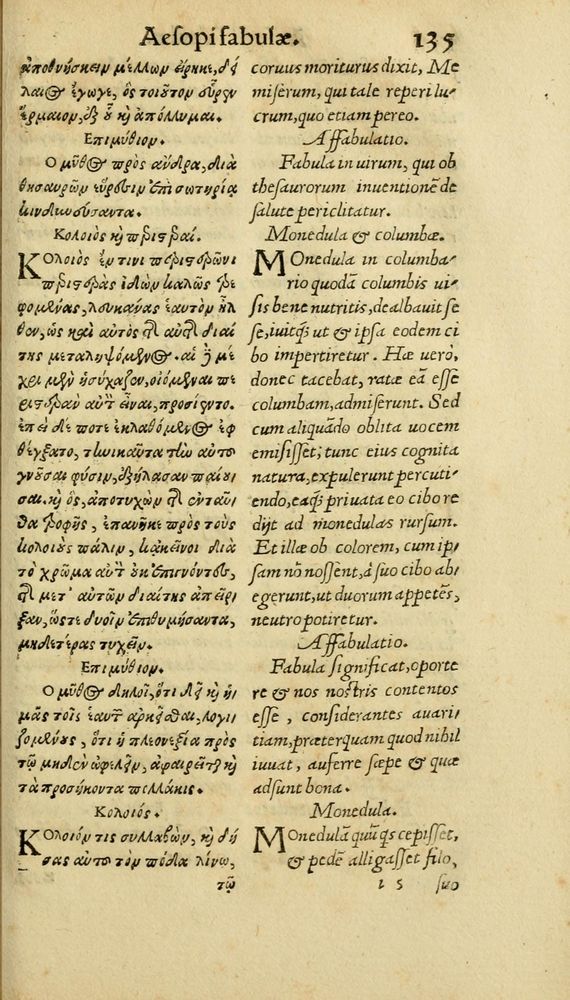 Aesopi fabulæ. 135
ἀποθνήσκειν μέλλων εἴρηκε, δεί
λαιος ἔγωγε, ὃς τοιοῦτον εὑρὼν
ἕρμαιον, ἐξ οὗ καὶ ἀπόλλυμαι.
Επιμύθιον.
Ο μῦθος πρὸς ἄνδρα, διὰ
θησαυρῶν εὕρεσιν ἐπὶ σωτηρίᾳ
κινδυνεύσαντα.
Κολοιὸς καὶ περιστεραί.
Κολοιὸς ἔν τινι περιστερεῶνι
περιστερὰς ἰδὼν καλῶς τρε
φομένας, λευκάνας ἑαυτὸν ἦλ
θεν, ὡς καὶ αὐτὸς τῆς αὐτῆς διαί
της μεταληψόμενος. αἱ δὲ μέ
χρι μὲν ἡσύχαζεν, οἰόμεναι πε
ριστερὰν αὐτὸν εἶναι, προσίεντο.
ἐπεὶ δέ ποτε ἐκλαθόμενος ἐφ
θέγξατο, τηνικαῦτα τὴν αὐτοῦ
γνοῦσαι φύσιν, ἐξήλασαν παίου
σαι. καὶ ὃς, ἀποτυχὼν τῆς ἐνταῦ
θα τροφῆς, ἐπανῆκε πρὸς τοὺς
κολοιοὺς πάλιν, κἀκεῖνοι διὰ
τὸ χρῶμα αὐτὸν οὐκ ἐπιγνόντες,
τῆς μετ' αὐτῶν διαίτης ἀπεῖρ
ξαν, ὥστε δυοῖν ἐπιθυμήσαντα,
μηδετέρας τυχεῖν.
Επιμύθιον.
Ο μῦθος δηλοῖ, ὅτι δεῖ καὶ ἡ
μᾶς τοῖς ἑαυτῶν ἀρκεῖσθαι, λογι
ζομένους, ὅτι ἡ πλεονεξία πρὸς
τῷ μηδὲν ὠφελεῖν, ἀφαιρεῖται καὶ
τὰ προσήκοντα πολλάκις.
Κολοιός.
Κολοιόν τις συλλαβὼν, καὶ δή
σας αὐτοῦ τὸν πόδα λίνῳ,
τῷ
coruus moriturus dixit, Me
miserum, qui tale reperi lu-
crum, quo etiam pereo.
Affabulatio.
Fabula in uirum, qui ob
thesaurorum inuentionē de
salute periclitatur.
Monedula & columbæ.
MOnedula in columba-
rio quodā columbis ui-
sis bene nutritis, dealbauit se
se, iuitq́; ut & ipsa eodem ci
bo impertiretur. Hæ uerò,
donec tacebat, ratæ eā esse
columbam, admiserunt. Sed
cum aliquādo oblita uocem
emisisset, tunc eius cognita
natura, expulerunt percuti-
endo, eaq́; priuata eo cibo re
dijt ad monedulas rursum.
Et illæ ob colorem, cum ip-
sam nō nossent, à suo cibo ab-
egerunt, ut duorum appetēs,
neutro potiretur.
Affabulatio.
Fabula significat, oporte
re & nos nostris contentos
esse, considerantes auari-
tiam, præterquam quod nihil
iuuat, auferre sæpe & quæ
adsunt bona.
Monedula.
MOnedulā quū q̇s cepisset,
& pedē alligasset filo,
l 5 suo